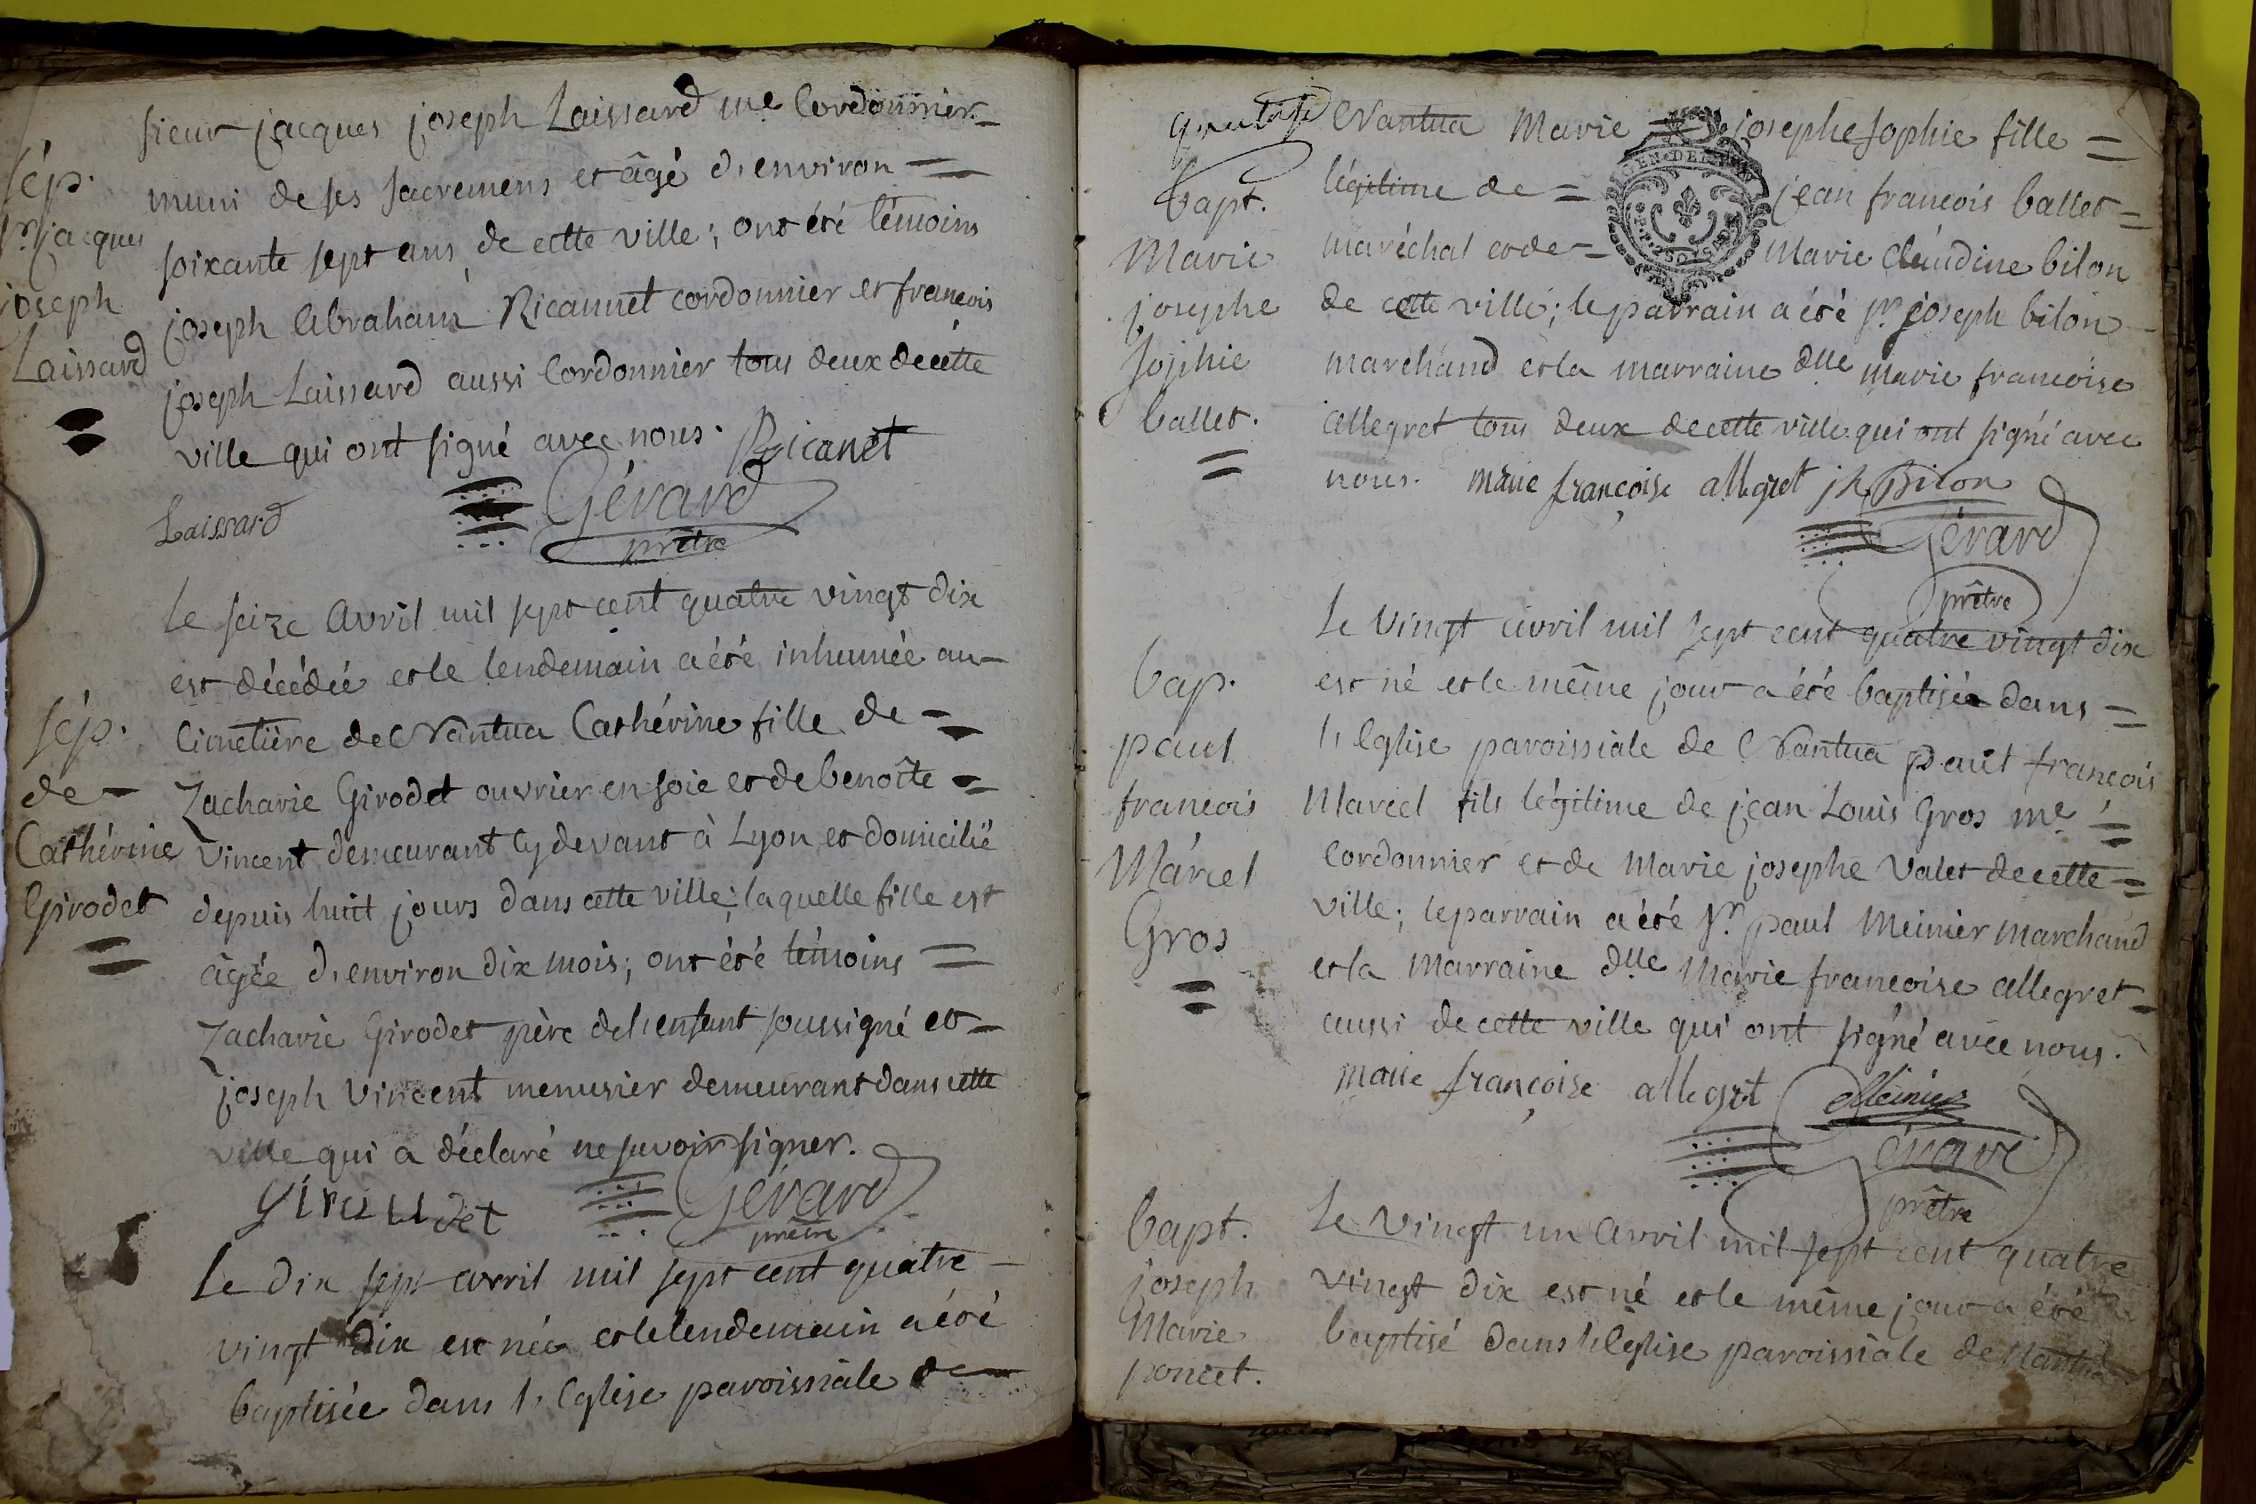 sieur jacques joseph Laissard me Cordonnier
muni de ses sacremens et âgé d'environ
soixante sept ans de cette ville; ont été témoins
joseph Abraham Ricannet cordonnier et francois
joseph Laissard aussi Cordonnier tous deux de cette
ville qui ont signé avec nous. Ricanet
Laissard Gérard
prêtre
sép.
sr jacques
joseph
Laissard
Le seize avril mil sept cent quatre vingt dix
est décédée et le lendemain a été inhumée au
Cimetière de Nantua Cathérine fille de
Zacharie Girodet ouvrier en soie et de benoîte
Vincent demeurant cy devant à Lyon et domicilié
depuis huit jours dans cette ville; laquelle fille est
âgée d'environ dix mois; ont été témoins
Zacharie Girodet père de l'enfant soussigné et
joseph Vincent menusier demeurant dans cette
ville qui a déclaré ne savoir signer.
Gérard
prêtre
sép.
de
Cathérine
Girodet
Le dix sept avril mil sept cent quatre
vingt dix est née et le lendemain a été
baptisée dans l'Eglise paroissiale de
Nantua Marie josephe sophie fille
légitime de jean francois ballet
maréchal et de Marie Claudine bilon
de cette ville; le parrain a été sr joseph bilon
marchand et la marraine dlle marie francoise
allegret tous deux de cette ville qui ont signé avec
nous. marie françoise allegret jh Bilon
Gérard
prêtre
bapt.
Marie
josephe
sophie
ballet.
Le vingt avril mil sept cent quatre vingt dix
est né et le même jour a été baptisé dans
l'Eglise paroissiale de Nantua paul francois
Marcel fils légitime de jean Louis Gros me
Cordonnier et de Marie josephe Valet de cette
ville; le parrain a été sr. paul Meinier marchand
et la marraine dlle Marie francoise allegret
aussi de cette ville qui ont signé avec nous.
marie françoise allegret Meinier
Gérard
prêtre
bap.
paul
francois
Marcel
Gros
Le vingt un avril mil sept cent quatre
vingt dix est né et le même jour a été
baptisé dans l'Eglise paroissiale de Nantua
bapt.
joseph
Marie
poncet.